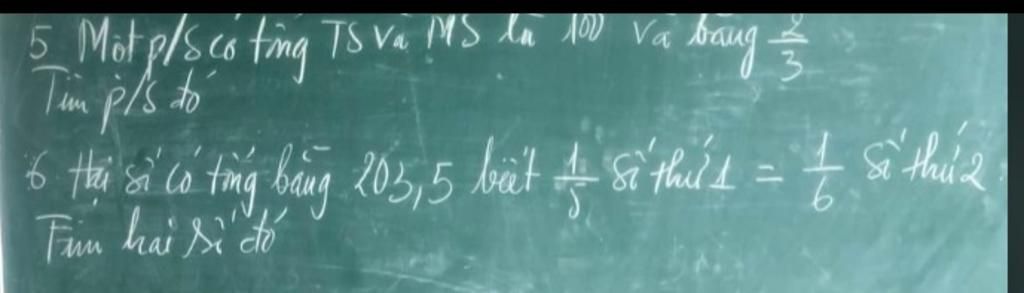 5 Một p/s có tổng TS và MS là 100 và bằng 2/3
Tìm p/s đó
6 Hai số có tổng bằng 203,5 biết 1/5 số thứ 1 = 1/6 số thứ 2
Tìm hai số đó